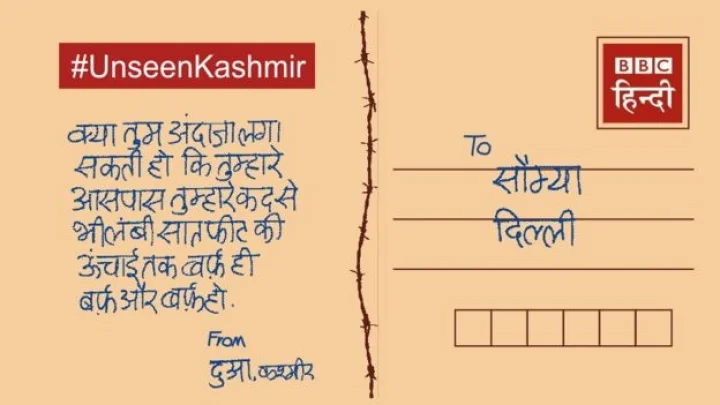 #UnseenKashmir
क्या तुम अंदाजा लगा
सकती हो कि तुम्हारे
आसपास तुम्हारे कद से
भी लंबी सात फीट की
ऊंचाई तक बर्फ़ ही
बर्फ़ और बर्फ़ हो.
From
दुआ, कश्मीर
BBC
हिन्दी
To
सौम्या
दिल्ली